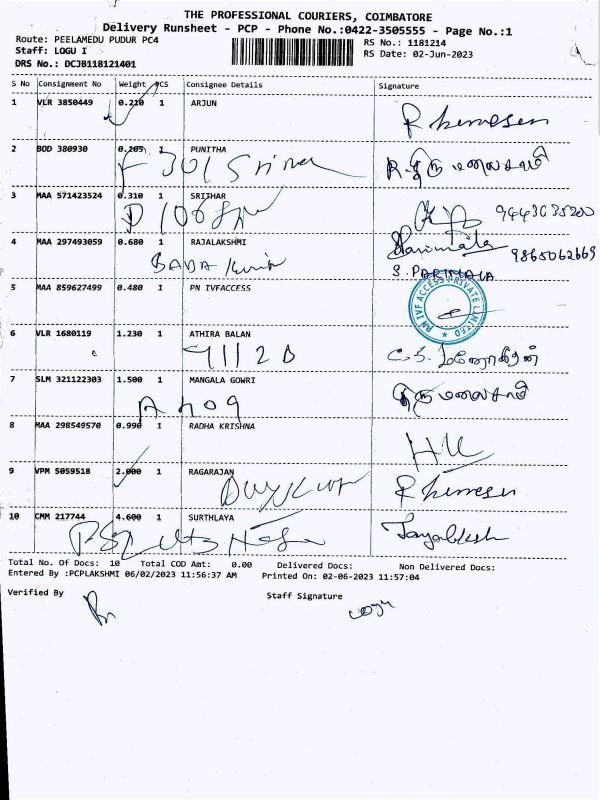 THE PROFESSIONAL COURIERS, COIMBATORE
Delivery Runsheet - PCP - Phone No.:0422-3505555 - Page No.:1
Route: PEELAMEDU PUDUR PC4
Staff: LOGU I
DRS No.: DCJB118121401
RS No.: 1181214
RS Date: 02-Jun-2023
S No Consignment No Weight PCS Consignee Details Signature
1 VLR 3850449 0.210 1 ARJUN
2 BOD 380930 0.205 1 PUNITHA
F 301
3 MAA 571423524 0.310 1 SRITHAR
D 106
4 MAA 297493059 0.680 1 RAJALAKSHMI
9865062669
BABA
S. PARIMALA
5 MAA 859627499 0.480 1 PN IVFACCESS
PN IVF ACCESS PRIVATE LIMITED
6 VLR 1680119 1.230 1 ATHIRA BALAN
7 SLM 321122303 1.500 1 MANGALA GOWRI
A 409
8 MAA 298549570 0.990 1 RADHA KRISHNA
9 VPM 5059518 2.000 1 RAGARAJAN
10 CMM 217744 4.600 1 SURTHLAYA
Total No. Of Docs: 10 Total COD Amt: 0.00 Delivered Docs: Non Delivered Docs:
Entered By :PCPLAKSHMI 06/02/2023 11:56:37 AM Printed On: 02-06-2023 11:57:04
Verified By Staff Signature